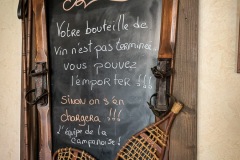 Votre bouteille de
vin n'est pas terminée,
vous pouvez
l'emporter !!!
Sinon on s'en
chargera !!!
L'équipe de la
Campanoise!